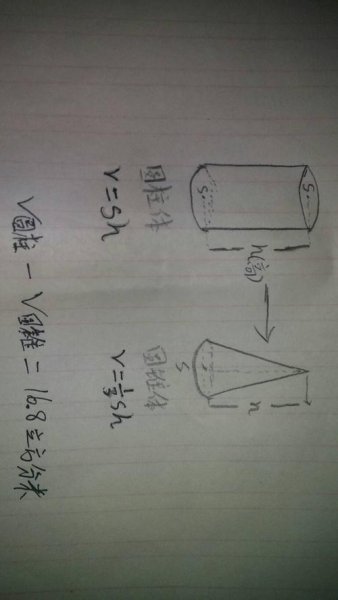 S
S
h(高)
h
S
圆柱体
圆锥体
V=Sh
V=⅓Sh
V圆柱 − V圆锥 = 16.8立方分米